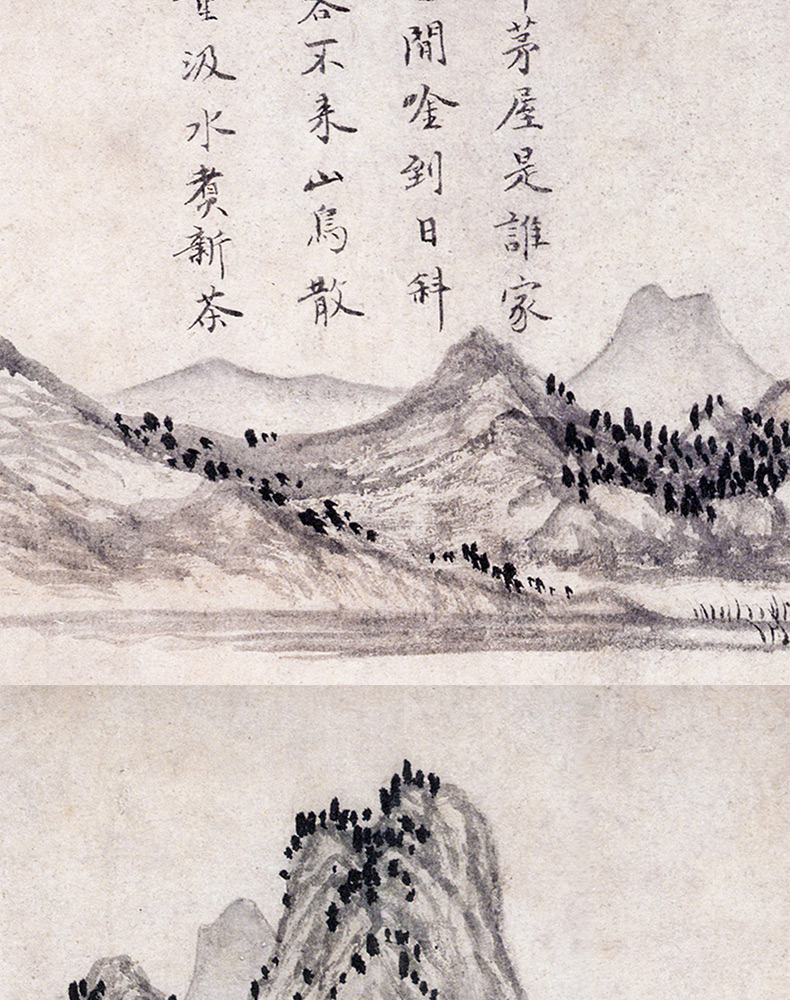 茅屋是誰家
閒唫到日斜
不来山鳥散
汲水煑新茶